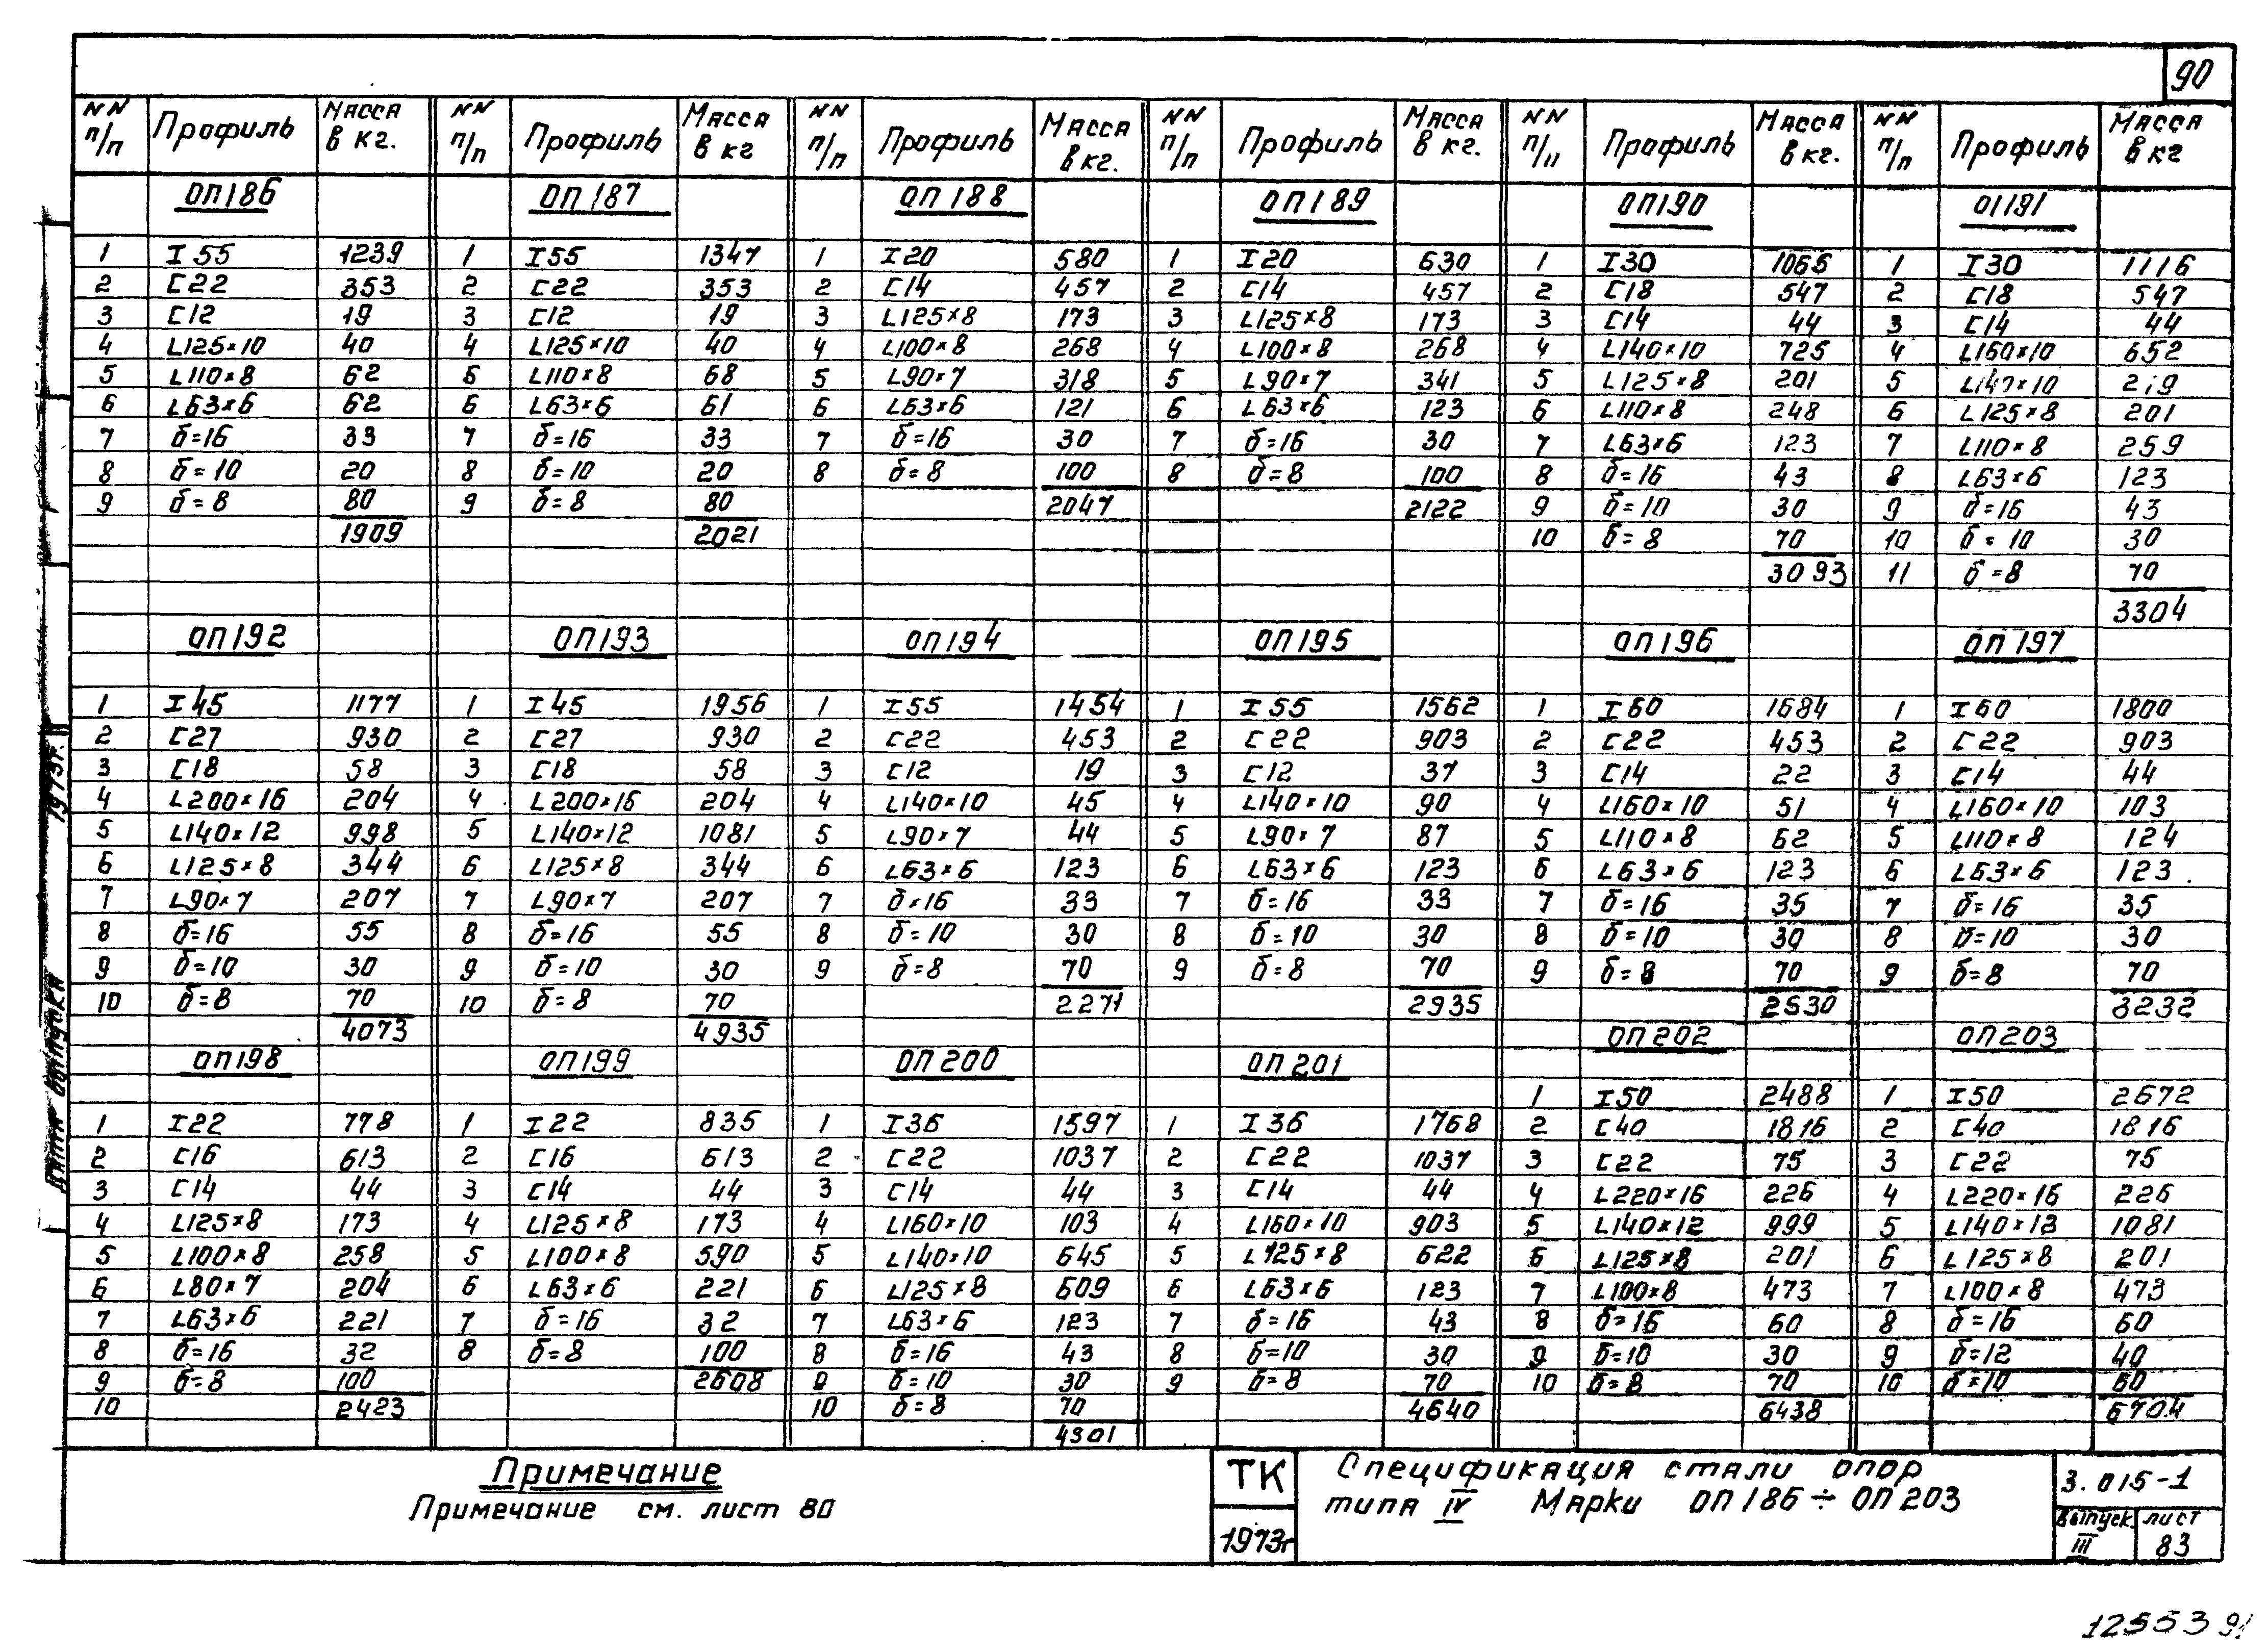 90
NN п/п Профиль Масса в кг. NN п/п Профиль Масса в кг NN п/п Профиль Масса в кг. NN п/п Профиль Масса в кг. NN п/п Профиль Масса в кг. NN п/п Профиль Масса в кг
ОП186 ОП187 ОП188 ОП189 ОП190 ОП191
1 I55 1239 1 I55 1347 1 I20 580 1 I20 630 1 I30 1065 1 I30 1116
2 [22 353 2 [22 353 2 [14 457 2 [14 457 2 [18 547 2 [18 547
3 [12 19 3 [12 19 3 L125×8 173 3 L125×8 173 3 [14 44 3 [14 44
4 L125×10 40 4 L125×10 40 4 L100×8 268 4 L100×8 268 4 L140×10 725 4 L160×10 652
5 L110×8 62 5 L110×8 68 5 L90×7 318 5 L90×7 341 5 L125×8 201 5 L140×10 219
6 L63×6 62 6 L63×6 61 6 L63×6 121 6 L63×6 123 6 L110×8 248 6 L125×8 201
7 δ=16 33 7 δ=16 33 7 δ=16 30 7 δ=16 30 7 L63×6 123 7 L110×8 259
8 δ=10 20 8 δ=10 20 8 δ=8 100 8 δ=8 100 8 δ=16 43 8 L63×6 123
9 δ=8 80 9 δ=8 80 2047 2122 9 δ=10 30 9 δ=16 43
1909 2021 10 δ=8 70 10 δ=10 30
3093 11 δ=8 70
3304
ОП192 ОП193 ОП194 ОП195 ОП196 ОП197
1 I45 1177 1 I45 1956 1 I55 1454 1 I55 1562 1 I60 1684 1 I60 1800
2 [27 930 2 [27 930 2 [22 453 2 [22 903 2 [22 453 2 [22 903
3 [18 58 3 [18 58 3 [12 19 3 [12 37 3 [14 22 3 [14 44
4 L200×16 204 4 L200×16 204 4 L140×10 45 4 L140×10 90 4 L160×10 51 4 L160×10 103
5 L140×12 998 5 L140×12 1081 5 L90×7 44 5 L90×7 87 5 L110×8 62 5 L110×8 124
6 L125×8 344 6 L125×8 344 6 L63×6 123 6 L63×6 123 6 L63×6 123 6 L63×6 123
7 L90×7 207 7 L90×7 207 7 δ=16 33 7 δ=16 33 7 δ=16 35 7 δ=16 35
8 δ=16 55 8 δ=16 55 8 δ=10 30 8 δ=10 30 8 δ=10 30 8 δ=10 30
9 δ=10 30 9 δ=10 30 9 δ=8 70 9 δ=8 70 9 δ=8 70 9 δ=8 70
10 δ=8 70 10 δ=8 70 2271 2935 2530 3232
4073 4935 ОП202 ОП203
ОП198 ОП199 ОП200 ОП201
1 I50 2488 1 I50 2672
1 I22 778 1 I22 835 1 I36 1597 1 I36 1768 2 [40 1816 2 [40 1816
2 [16 613 2 [16 613 2 [22 1037 2 [22 1037 3 [22 75 3 [22 75
3 [14 44 3 [14 44 3 [14 44 3 [14 44 4 L220×16 226 4 L220×16 226
4 L125×8 173 4 L125×8 173 4 L160×10 103 4 L160×10 903 5 L140×12 999 5 L140×12 1081
5 L100×8 258 5 L100×8 590 5 L140×10 645 5 L125×8 622 6 L125×8 201 6 L125×8 201
6 L80×7 204 6 L63×6 221 6 L125×8 609 6 L63×6 123 7 L100×8 473 7 L100×8 473
7 L63×6 221 7 δ=16 32 7 L63×6 123 7 δ=16 43 8 δ=16 60 8 δ=16 60
8 δ=16 32 8 δ=8 100 8 δ=16 43 8 δ=10 30 9 δ=10 30 9 δ=12 40
9 δ=8 100 2608 9 δ=10 30 9 δ=8 70 10 δ=8 70 10 δ=10 60
10 2423 10 δ=8 70 4640 6438 6704
4301
Примечание
Примечание см. лист 80
ТК
1973г
Спецификация стали опор
типа IV Марки ОП186÷ОП203
3.015-1
Выпуск III
лист 83
Дата выпуска 1973г.
12553 91